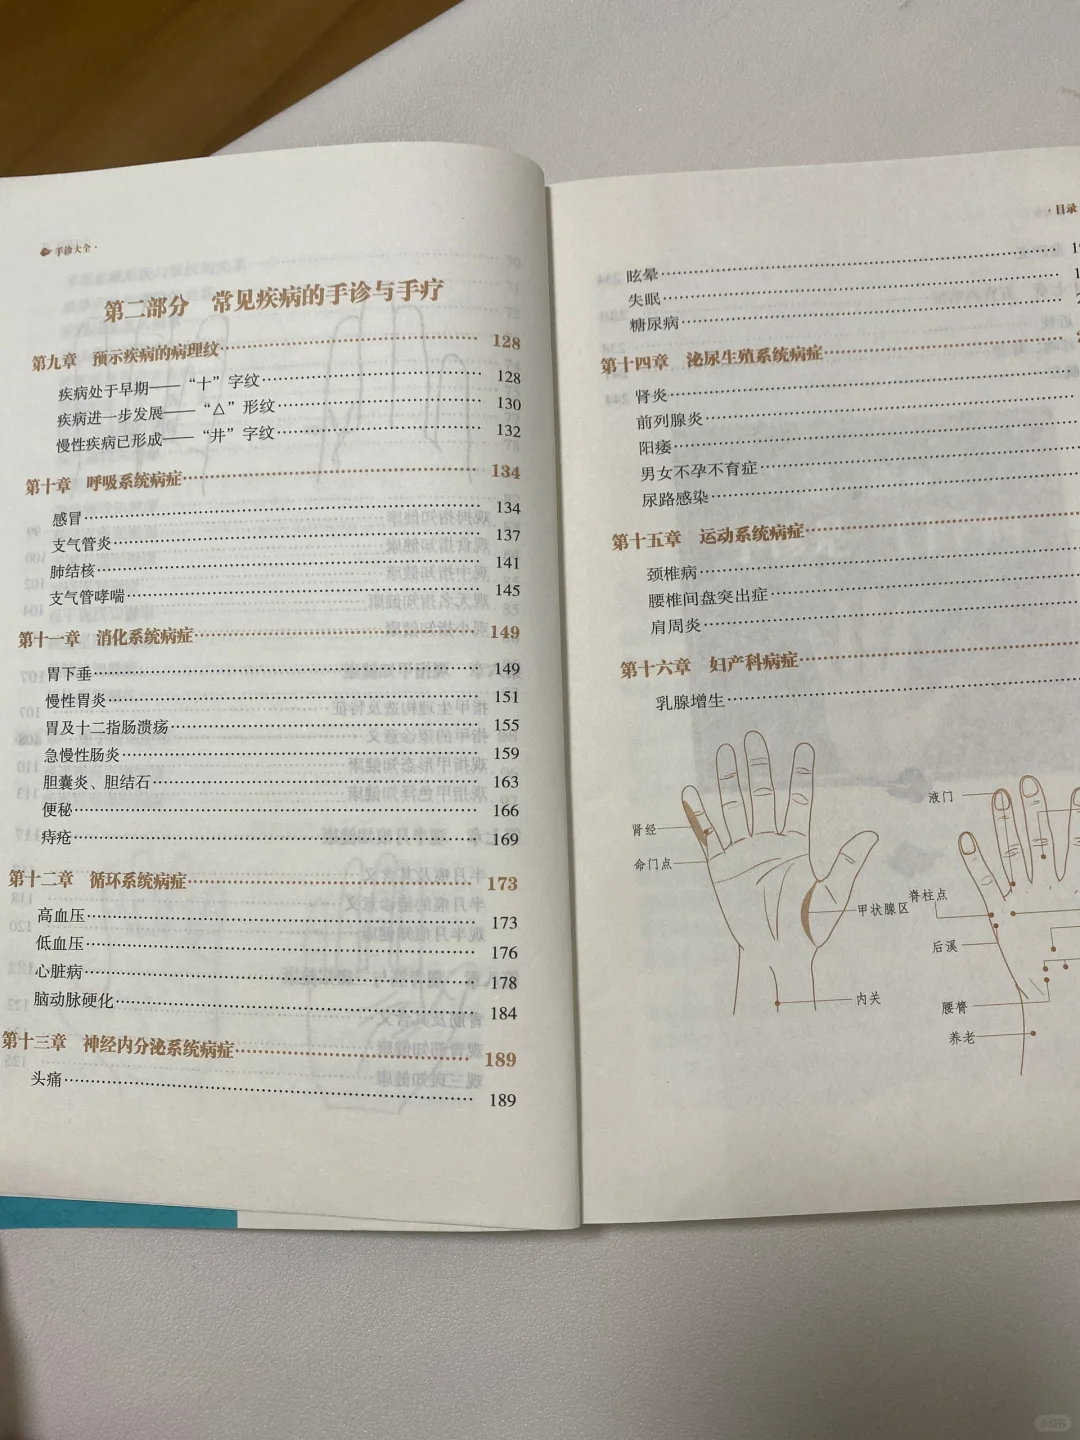 手诊大全·
第二部分 常见疾病的手诊与手疗
第九章 预示疾病的病理纹 128
疾病处于早期——“十”字纹 128
疾病进一步发展——“△”形纹 130
慢性疾病已形成——“井”字纹 132
第十章 呼吸系统病症 134
感冒 134
支气管炎 137
肺结核 141
支气管哮喘 145
第十一章 消化系统病症 149
胃下垂 149
慢性胃炎 151
胃及十二指肠溃疡 155
急慢性肠炎 159
胆囊炎、胆结石 163
便秘 166
痔疮 169
第十二章 循环系统病症 173
高血压 173
低血压 176
心脏病 178
脑动脉硬化 184
第十三章 神经内分泌系统病症 189
头痛 189
·目录
眩晕
失眠
糖尿病
第十四章 泌尿生殖系统病症
肾炎
前列腺炎
阳痿
男女不孕不育症
尿路感染
第十五章 运动系统病症
颈椎病
腰椎间盘突出症
肩周炎
第十六章 妇产科病症
乳腺增生
肾经
命门点
甲状腺区
内关
液门
脊柱点
后溪
腰脊
养老